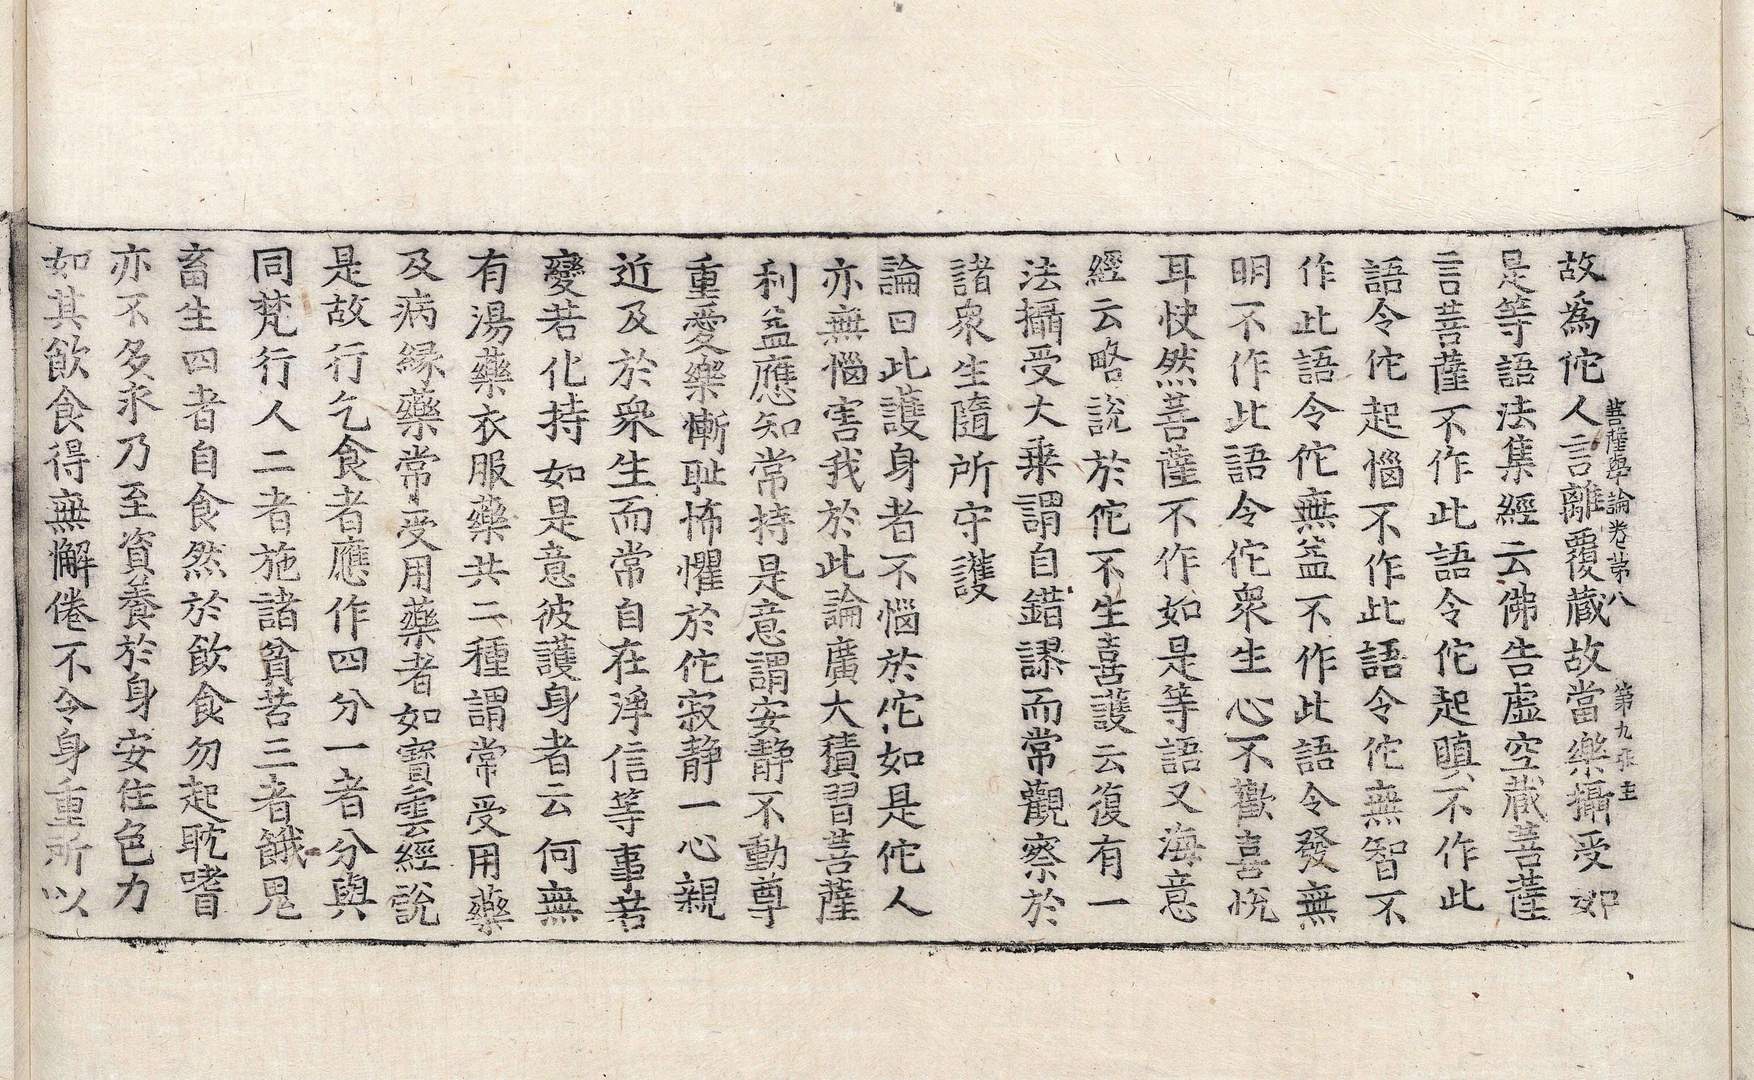 菩薩學論卷第八　第九張　圭
故爲佗人言離覆藏故當樂攝受如
是等語法集經云佛告虛空藏菩薩
言菩薩不作此語令佗起瞋不作此
語令佗起惱不作此語令佗無智不
作此語令佗無益不作此語令發無
明不作此語令佗衆生心不歡喜悅
耳快然菩薩不作如是等語又海意
經云略說於佗不生喜護云復有一
法攝受大乘謂自錯謬而常觀察於
諸衆生隨所守護
論曰此護身者不惱於佗如是佗人
亦無惱害我於此論廣大積習菩薩
利益應知常持是意謂安靜不動尊
重愛樂慚耻怖懼於佗寂靜一心親
近及於衆生而常自在淨信等事若
變若化持如是意彼護身者云何無
有湯藥衣服藥共二種謂常受用藥
及病緣藥常受用藥者如寶雲經說
是故行乞食者應作四分一者分與
同梵行人二者施諸貧苦三者餓鬼
畜生四者自食然於飲食勿起耽嗜
亦不多求乃至資養於身安住色力
如其飲食得無懈倦不令身重所以